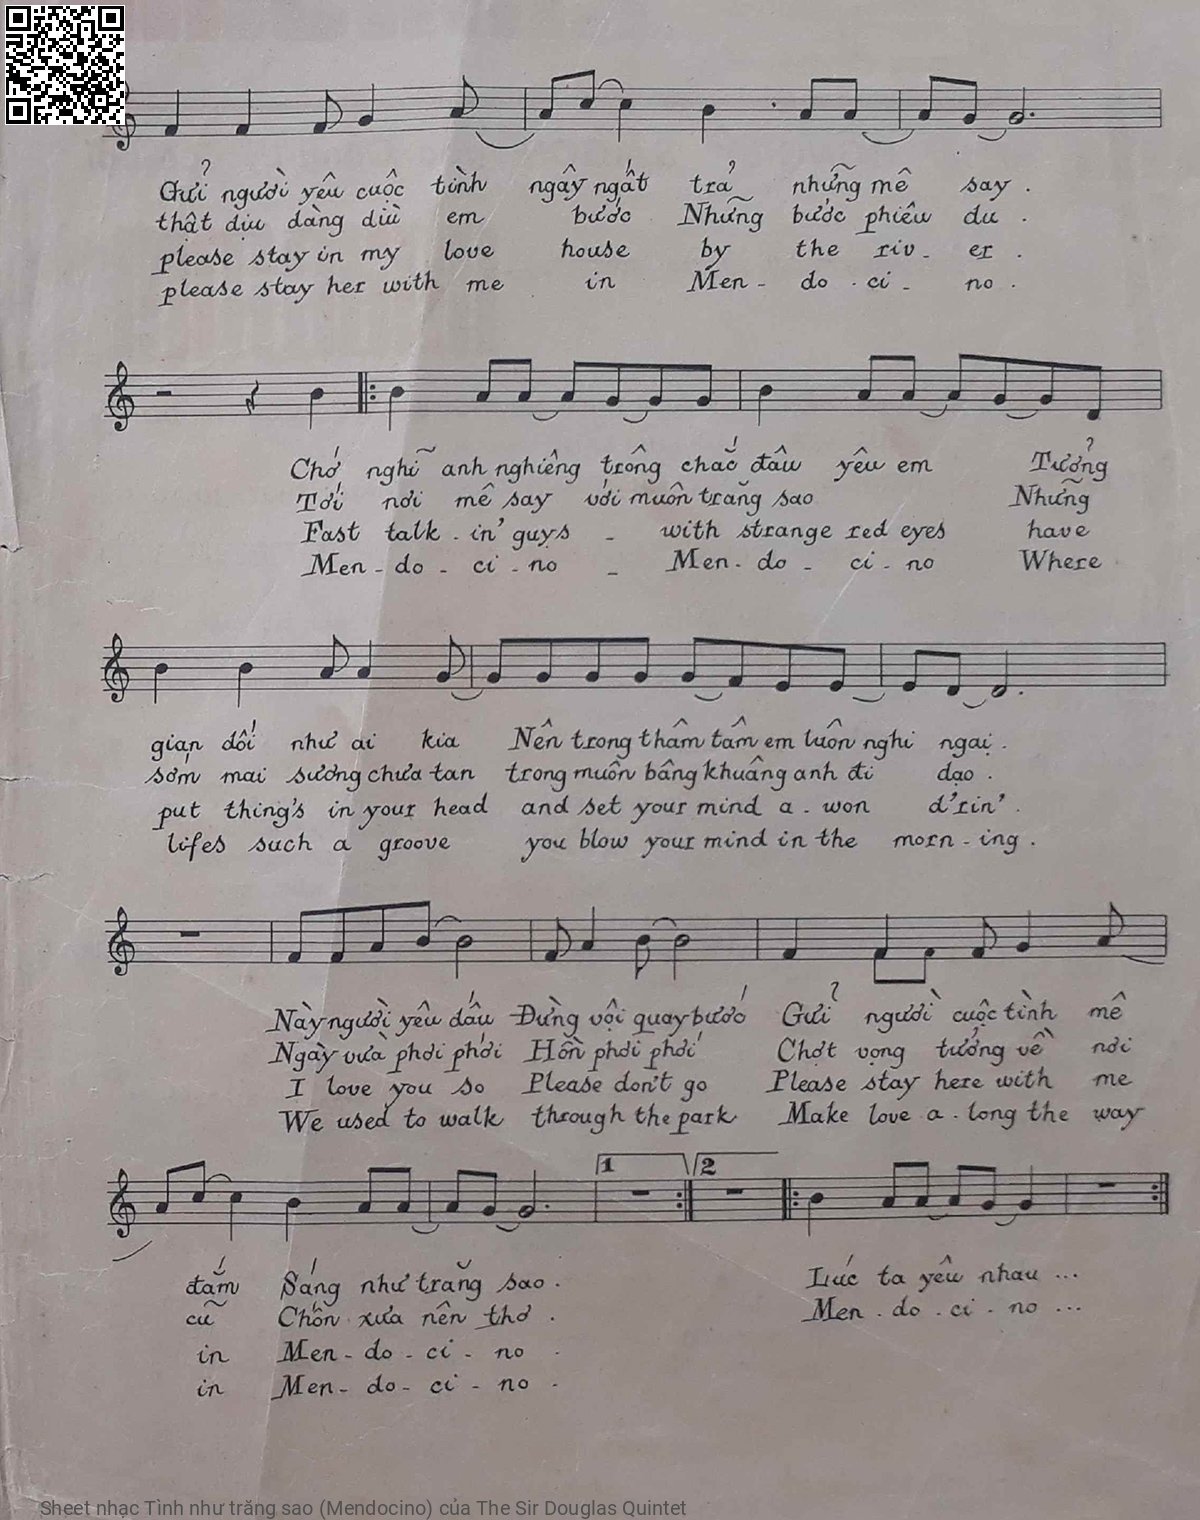 Gửi người yêu cuộc tình ngây ngất trả những mê say .
thật dịu dàng dìu em bước Những bước phiêu du .
please stay in my love house by the riv - er .
please stay her with me in Men - do - ci - no .
Chớ nghĩ anh nghiêng trông chắc đâu yêu em Tưởng
Tới nơi mê say với muôn trăng sao Những
Fast talk - in' guys - with strange red eyes have
Men - do - ci - no - Men - do - ci - no Where
gian dối như ai kia Nên trong thâm tâm em luôn nghi ngại .
sớm mai sương chưa tan trong muôn bâng khuâng anh đi dạo .
put thing's in your head and set your mind a - won d'rin' .
lifes such a groove you blow your mind in the morn - ing .
Này người yêu dấu Đừng vội quay bước Gửi người cuộc tình mê
Ngày vừa phơi phới Hồn phơi phới Chợt vọng tưởng về nơi
I love you so Please don't go Please stay here with me
We used to walk through the park Make love a - long the way
1 2
đắm Sáng như trăng sao . Lúc ta yêu nhau ...
cũ Chốn xưa nên thơ . Men - do - ci - no ...
in Men - do - ci - no .
in Men - do - ci - no .
Sheet nhạc Tình như trăng sao (Mendocino) của The Sir Douglas Quintet